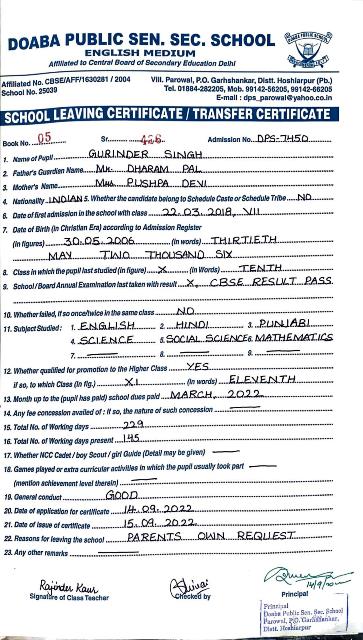 DOABA PUBLIC SEN. SEC. SCHOOL
ENGLISH MEDIUM
Affiliated to Central Board of Secondary Education Delhi
Affiliated No. CBSE/AFF/1630281 / 2004
School No. 25039
Vill. Parowal, P.O. Garhshankar, Distt. Hoshiarpur (Pb.)
Tel. 01884-282205, Mob. 99142-56205, 99142-66205
E-mail : dps_parowal@yahoo.co.in
SCHOOL LEAVING CERTIFICATE / TRANSFER CERTIFICATE
Book No. 05 Sr. 426 Admission No. DPS-7450
1. Name of Pupil GURINDER SINGH
2. Father's Guardian Name Mr. DHARAM PAL
3. Mother's Name Mrs. PUSHPA DEVI
4. Nationality INDIAN 5. Whether the candidate belong to Schedule Caste or Schedule Tribe NO
6. Date of first admission in the school with class 22.03.2018, VII
7. Date of Birth (in Christian Era) according to Admission Register
(in figures) 30.05.2006 (In words) THIRTIETH
MAY TWO THOUSAND SIX
8. Class in which the pupil last studied (in figure) X (in Words) TENTH
9. School / Board Annual Examination last taken with result X, CBSE RESULT PASS
10. Whether failed, if so once/twice in the same class NO
11. Subject Studied : 1. ENGLISH 2. HINDI 3. PUNJABI
4. SCIENCE 5. SOCIAL SCIENCE 6. MATHEMATICS
7. 8. 9.
12. Whether qualified for promotion to the Higher Class YES
if so, to which Class (in fig.) XI (in words) ELEVENTH
13. Month up to the (pupil has paid) school dues paid MARCH, 2022
14. Any fee concession availed of : If so, the nature of such concession
15. Total No. of Working days 229
16. Total No. of Working days present 145
17. Whether NCC Cadet / boy Scout / girl Guide (Detail may be given)
18. Games played or extra curricular activities in which the pupil usually took part
(mention achievement level therein)
19. General conduct GOOD
20. Date of application for certificate 14.09.2022
21. Date of issue of certificate 15.09.2022
22. Reasons for leaving the school PARENTS OWN REQUEST
23. Any other remarks
Rajinder Kaur
Signature of Class Teacher
Checked by
Principal
Principal
Doaba Public Sen. Sec. School
Parowal, P.O. Garhshankar,
Distt. Hoshiarpur